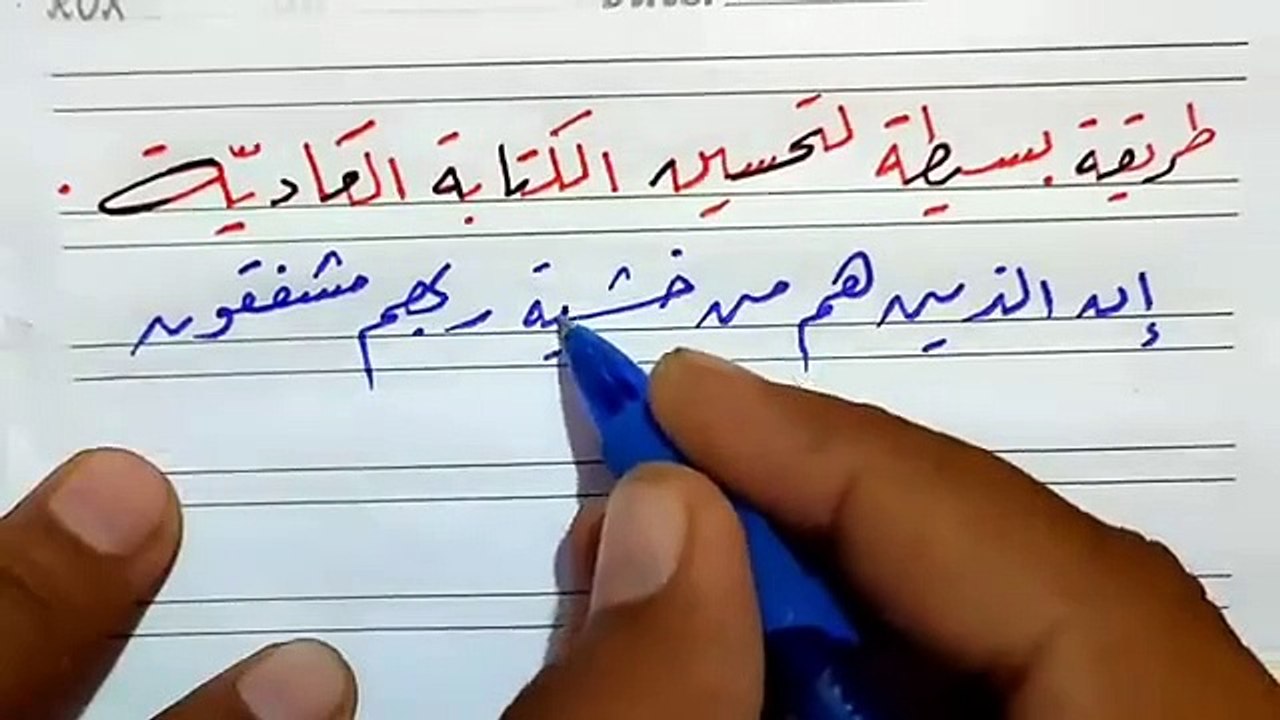 طريقة بسيطة لتحسين الكتابة العاديّة .
إن الذين هم من خشية ربهم مشفقون